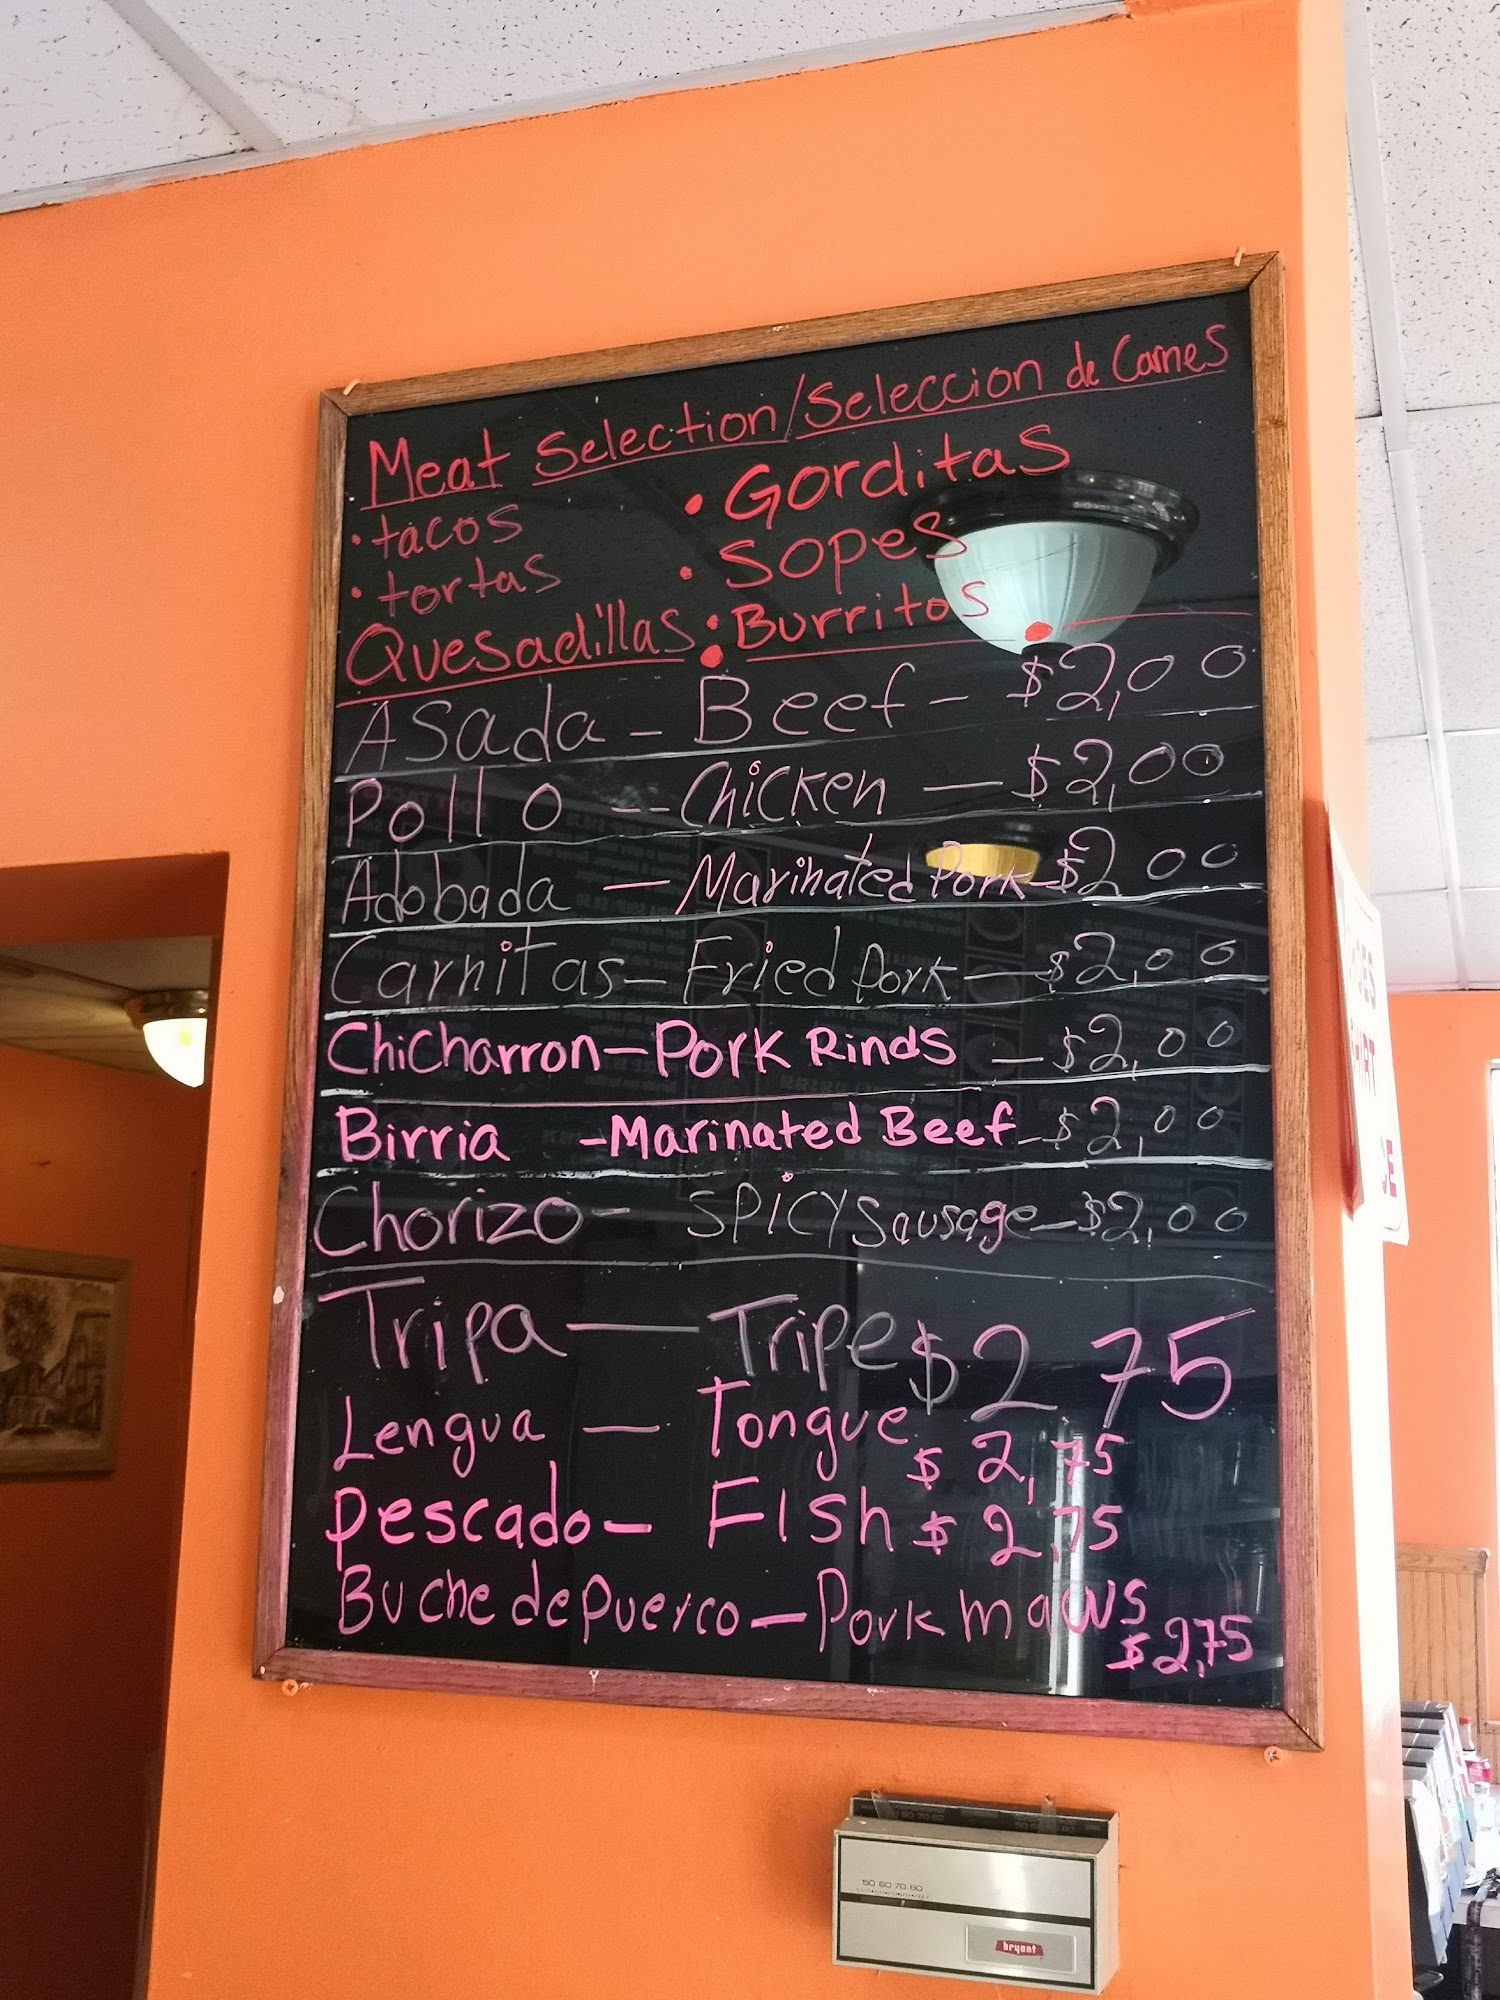 Meat Selection/Seleccion de Carnes
• tacos • Gorditas
• tortas • Sopes
Quesadillas • Burritos
Asada - Beef - $2,00
Pollo -- Chicken - $2,00
Adobada - Marinated Pork - $2 00
Carnitas - Fried Pork - $2,00
Chicharron - Pork Rinds - $2,00
Birria - Marinated Beef - $2,00
Chorizo - SPICY Sausage - $2,00
Tripa - Tripe $2 75
Lengua - Tongue $2,75
Pescado - Fish $2,75
Buche de Puerco - Pork maws $2,75
50 60 70 80
bryant